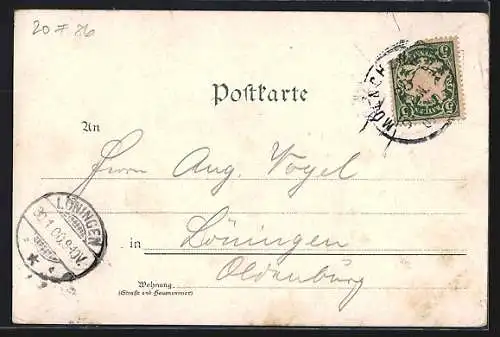 20 F 86
Postkarte
An
Herrn Aug. Vogel
in Löningen
Oldenburg
Wohnung
(Straße und Hausnummer)
LÖNINGEN
MÜNCHEN
5 5
5 5